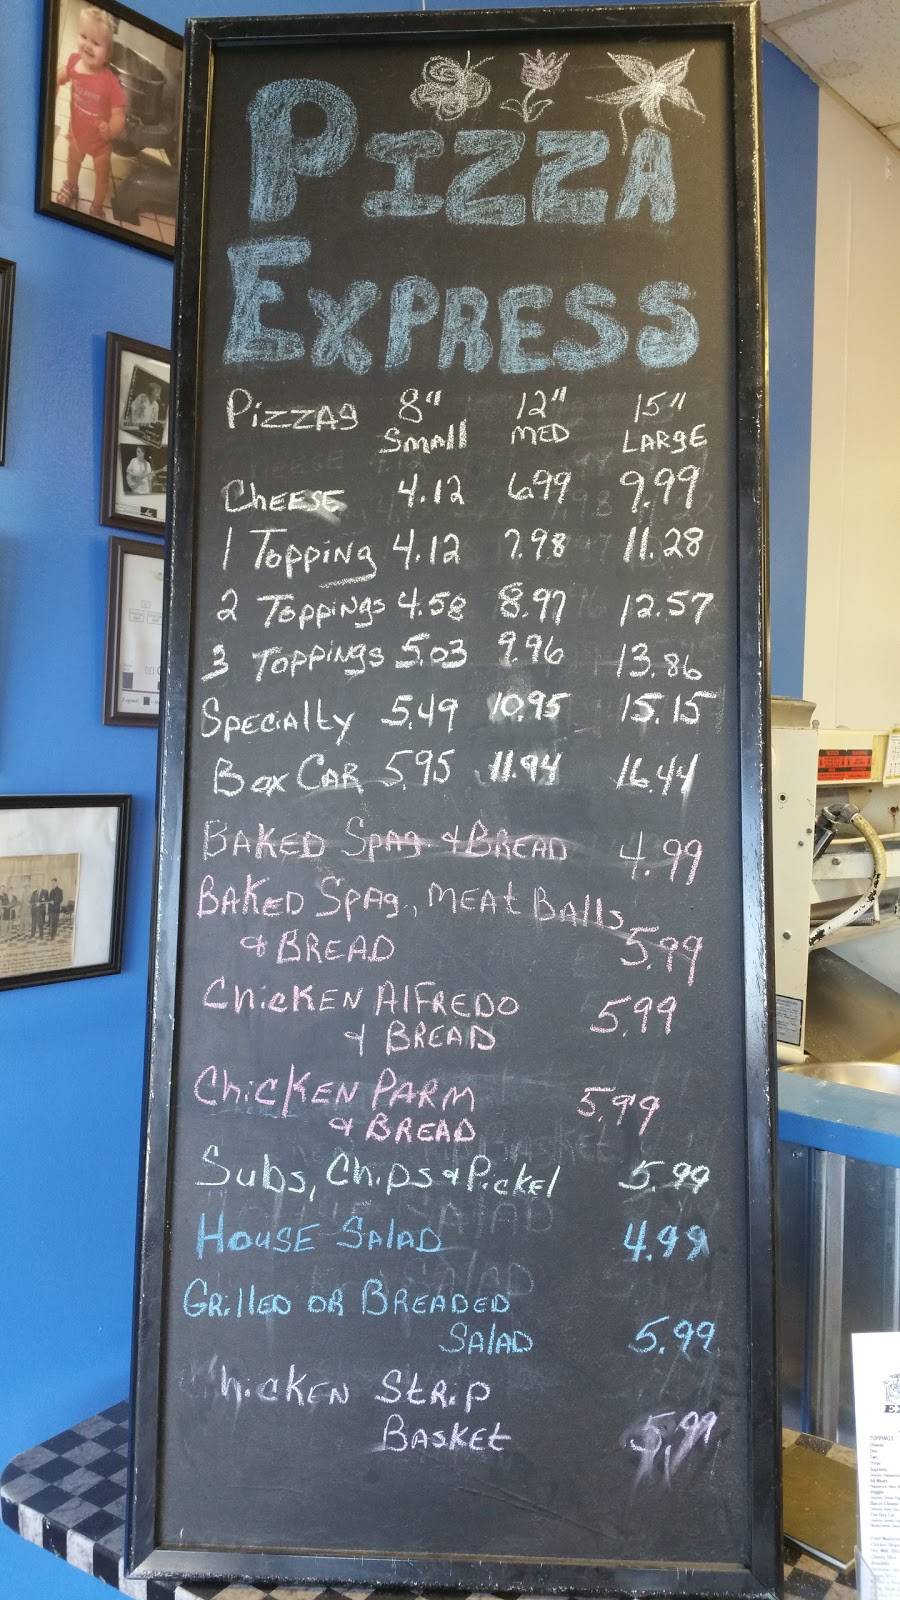 PIZZA
EXPRESS
PIZZAS 8" 12" 15"
Small MED LARGE
CHEESE 4.12 6.99 9.99
1 TOPPING 4.12 7.98 11.28
2 TOPPINGS 4.58 8.97 12.57
3 TOPPINGS 5.03 9.96 13.86
SPECIALTY 5.49 10.95 15.15
BOX CAR 5.95 11.94 16.44
BAKED SPAG & BREAD 4.99
BAKED SPAG., MEAT BAlls
& BREAD 5.99
CHICKEN AlFREDO 5.99
& BREAD
CHICKEN PARM 5.99
& BREAD
Subs, Chips & Pickel 5.99
HOUSE SAlAD 4.99
GRillED OR BREADED
SAlAD 5.99
hicKEN STRiP
BASKEt 5.99
TOPPINGS